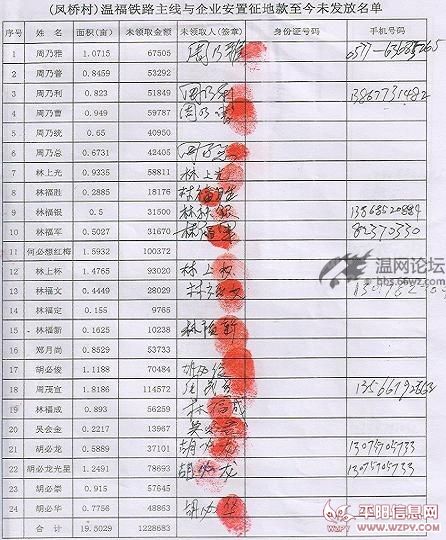 (凤桥村)温福铁路主线与企业安置征地款至今未发放名单
序号 姓 名 面积(亩) 未领取金额 未领取人(签章) 身份证号码 手机号码
1 周乃雅 1.0715 67505 周乃雅
2 周乃普 0.8459 53292
3 周乃利 0.823 51849 周乃利 13867731482
4 周乃曹 0.949 59787
5 周乃统 0.65 40950
6 周乃总 0.6731 42405
7 林上光 0.9335 58811 林上光
8 林福胜 0.2885 18176 林福胜
9 林福银 0.5 31500 林福银 13868520884
10 林福军 0.5027 31670 林福军 82370330
11 何必想红梅 1.5932 100372
12 林上杯 1.4765 93020 林上杯
13 林福文 0.4449 28029 林福文
14 林福定 0.155 9765
15 林福新 0.1625 10238 林福新
16 郑月尚 0.8529 53733
17 胡必俊 1.1188 70484
18 周茂宣 1.8186 114572
19 林福成 0.893 56259 林福成
20 吴会金 0.2217 13967
21 胡必龙 0.5889 37101 胡必龙 13075705733
22 胡必龙光星 1.2491 78693 胡必龙 13075705733
23 胡必崇 0.915 57645
24 胡必华 0.7756 48863 胡必华
合 计 19.5029 1228683
温网论坛
bbs.66wz.com
平阳信息网
WWW.WZPY.COM